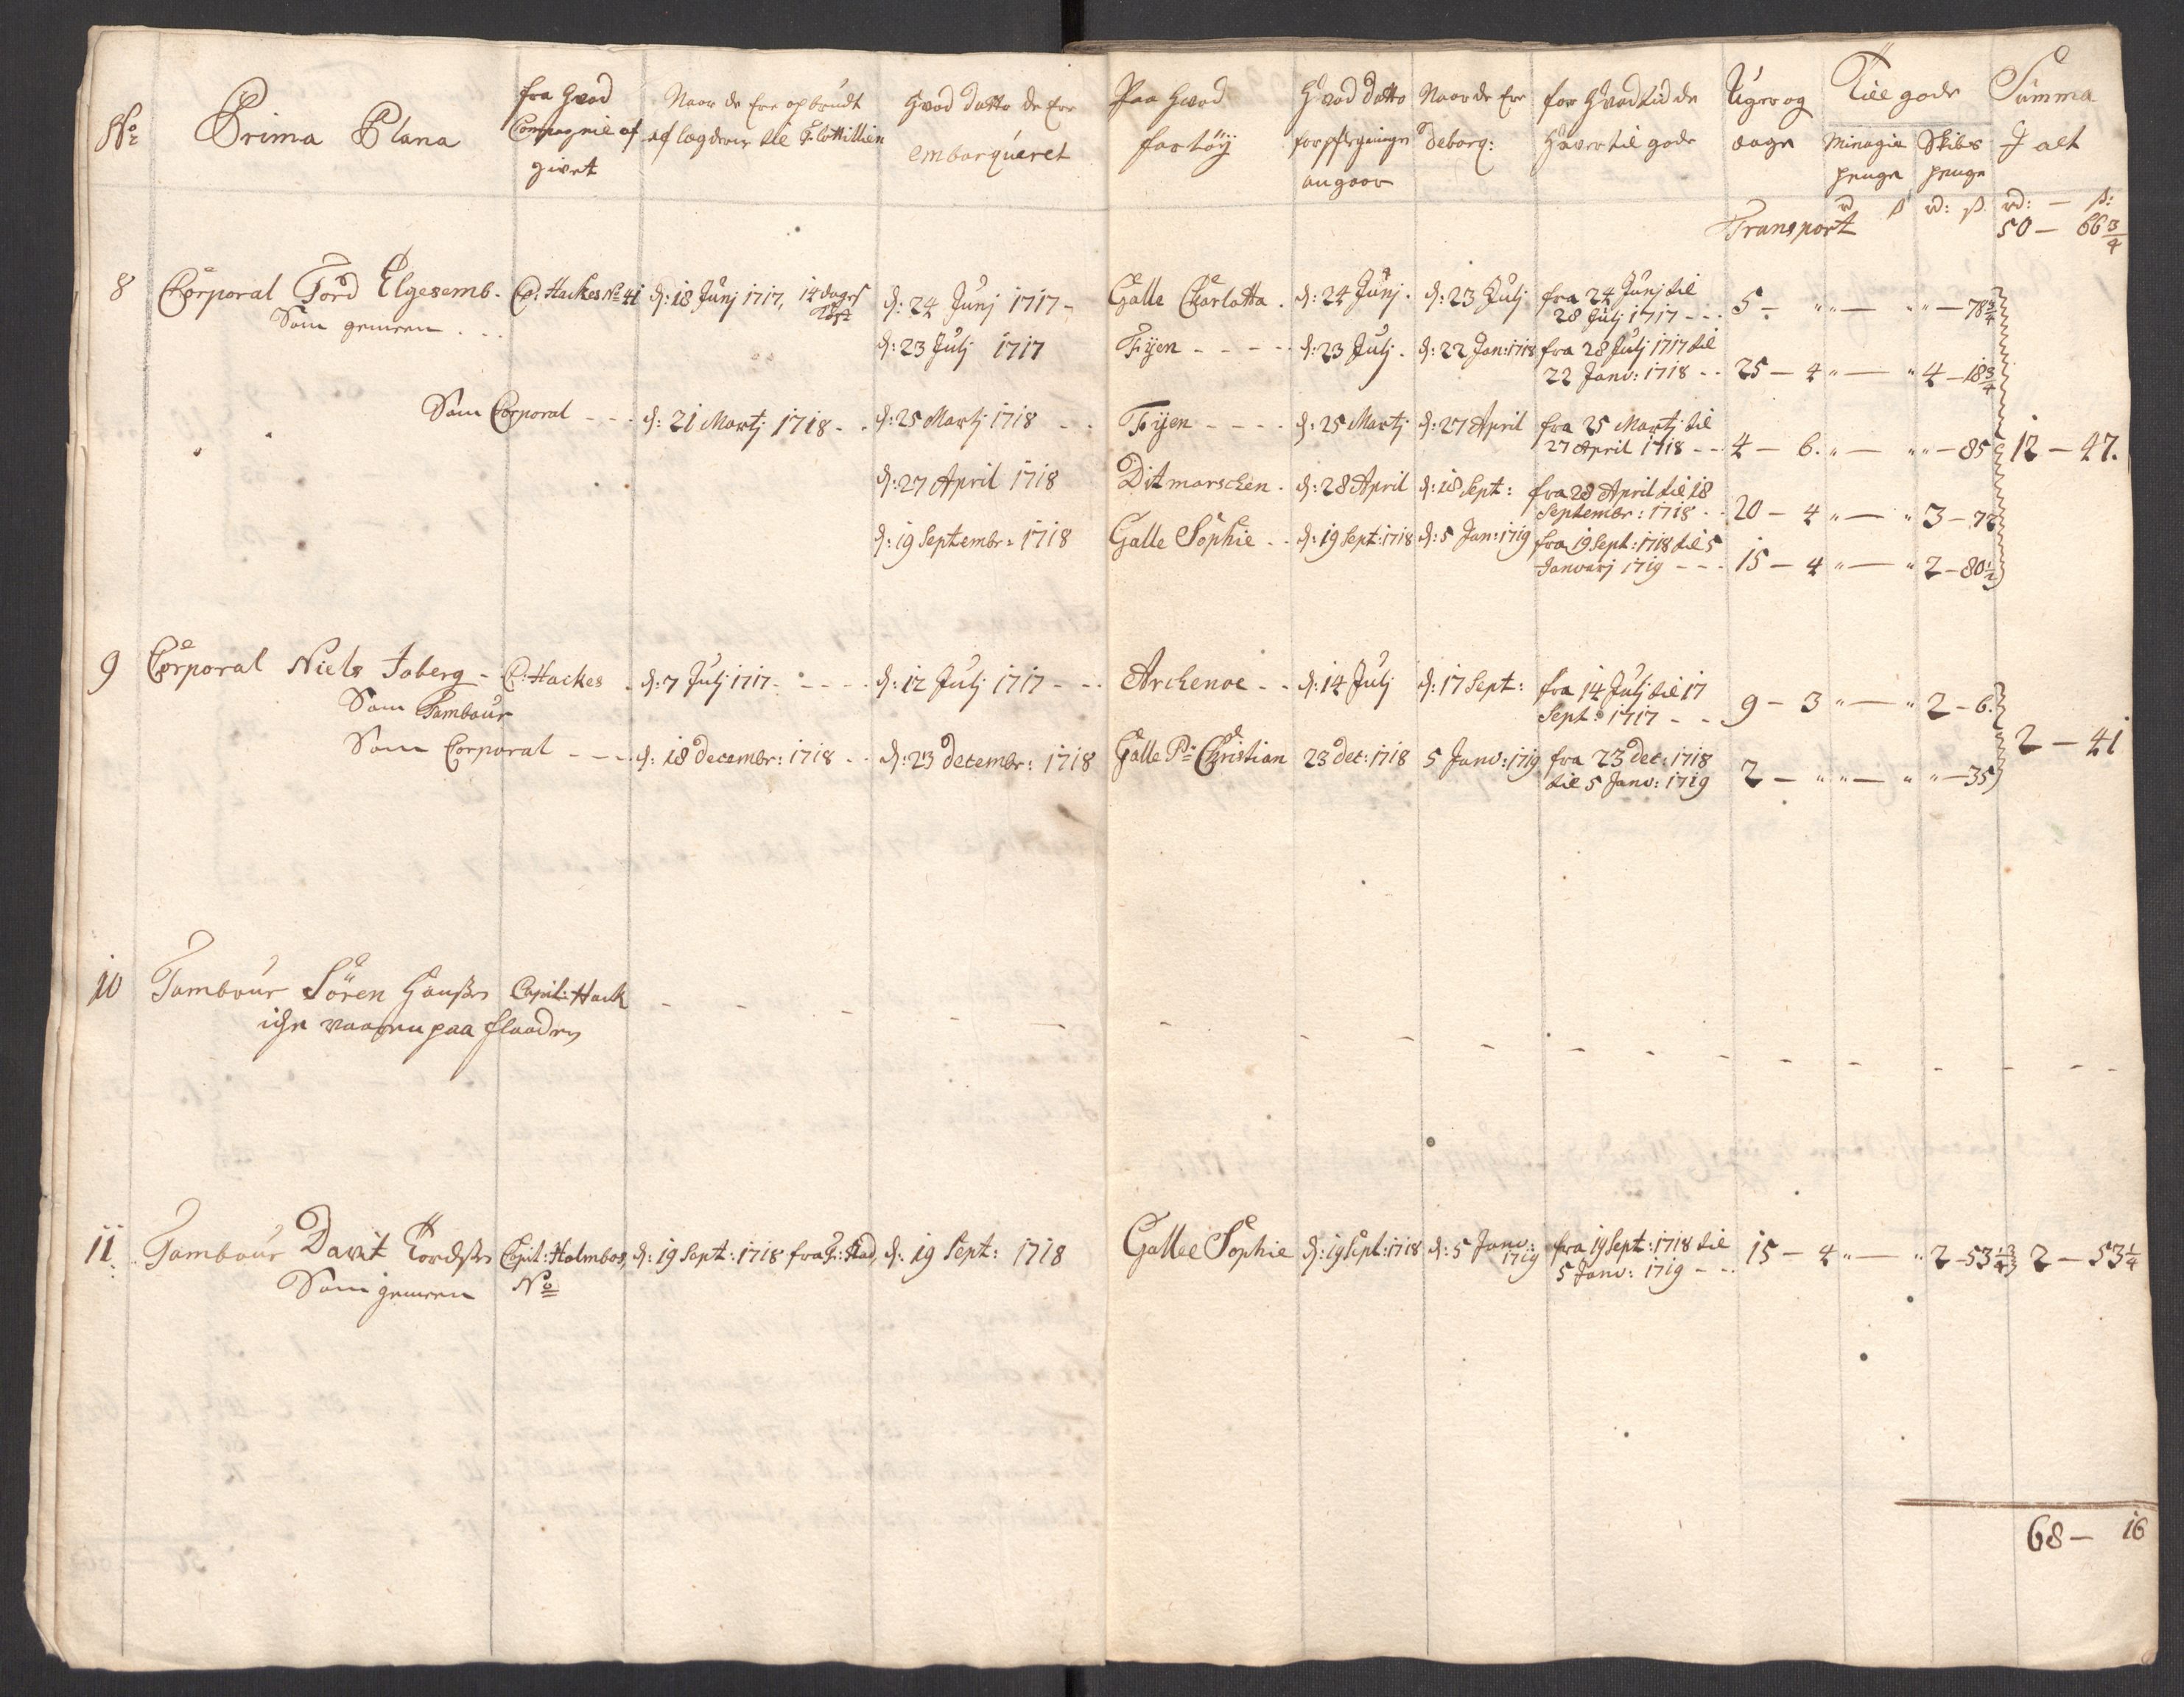 No
Prima Plana
fra Hvad
Compagnie af
givet
Naar de Ere opbrudt
af lægderne til Flottillien
Hvad Datto de Ere
embarqueret
Paa Hvad
fartöÿ
Hvad Datto
forpflegningen
angaar
Naar de Ere
debarq:
for Hvad tid de
Haver til gode
Uger og
dage
Till gode
Minagie
penge
Skibs
penge
Summa
J alt
rd ß rd: ß. rd: — ß:
Transport 50 — 66 3/4
8 Corporal Tord Elgesemb. C: Hackes No 41 d: 18 Junj 1717, 14 dages Kost d: 24 Junj 1717 Galle Charlotta. d: 24 Junj. d: 23 Julj fra 24 Junj til
28 Julj 1717 5 — " " — " " — 78 3/4
Som gemeen
d: 23 Julj 1717 Fijen d: 23 Julj. d: 22 Jan: 1718 fra 28 Julj 1717 til
22 Janv: 1718 25 — 4 " — " 4 — 18 3/4
Som Corporal d: 21 Martj 1718 d: 25 Martj 1718 Fijen d: 25 Martj d: 27 April fra 25 Martj til
27 April 1718 4 — 6. " — " " — 85 12 — 47.
d: 27 April 1718 Ditmarschen. d: 28 April d: 18 Sept: fra 28 April til 18
Septembr: 1718 20 — 4 " — " 3 — 72
d: 19 Septembr: 1718 Galle Sophie d: 19 Sept: 1718 d: 5 Jan: 1719 fra 19 Sept: 1718 til 5
Januarj 1719 15 — 4 " — " 2 — 80 1/2
9 Corporal Niels Joberg C: Hackes d: 7 Julj 1717 d: 12 Julj 1717 Archenoe d: 14 Julj d: 17 Sept: fra 14 Julj til 17
Sept: 1717 9 — 3 " — " 2 — 6.
Som Tambour
2 — 41
Som Corporal d: 18 Decembr: 1718 d: 23 Decembr: 1718 Galle Pr: Christian 23 Dec: 1718 5 Janv: 1719 fra 23 Dec: 1718
til 5 Janv: 1719 2 — " " — " " — 35
10 Tambour Sören Hanßen Capit: Hack
iche vaaren paa flaaden
11 Tambour Davit Tordßen Capit: Holmboe, d: 19 Sept: 1718 fra Fr: Stad, d: 19 Sept: 1718 Gallee Sophie d: 19 Sept: 1718 d: 5 Janv: 1719 fra 19 Sept: 1718 til
5 Janv: 1719 15 — 4 " — " 2 — 53 1/4 2 — 53 1/4
Som gemeen No
68 — 16